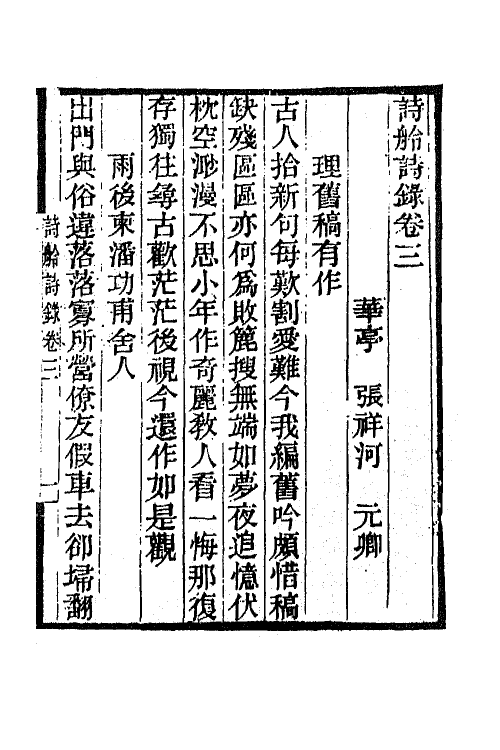 詩舲詩錄卷三
華亭　張祥河　元卿
理舊稿有作
古人拾新句每歎割愛難今我編舊吟頗惜稿
缺殘區區亦何為敗簏搜無端如夢夜追憶伏
枕空渺漫不思小年作奇麗教人看一悔那復
存獨往尋古歡茫茫後視今還作如是觀
雨後柬潘功甫舍人
出門與俗違落落寡所營僚友假車去卻埽翻
詩舲詩錄卷三
一